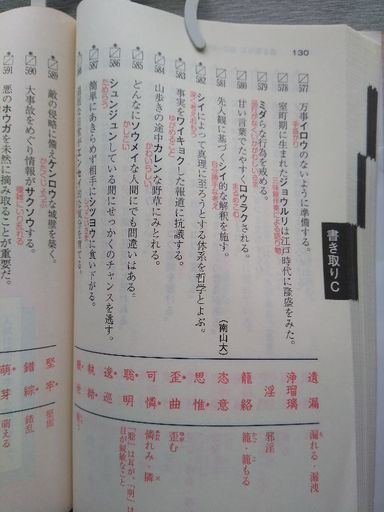 130
書き取りC
577 万事イロウのないように準備する。 遺漏 漏れる・漏洩
578 室町期に生まれたジョウルリは江戸時代に隆盛をみた。 浄瑠璃
三味線伴奏による語り物
579 ミダらな行為を戒める。 淫 邪淫
580 甘い言葉でたやすくロウラクされる。 籠絡 籠・籠もる
まるめこむ
581 先入観に基づくシイ的な解釈を施す。 (南山大) 恣意
自分勝手な考え
582 シイによって真理に至ろうとする体系を哲学とよぶ。 思惟
深く考えること
583 事実をワイキョクした報道に抗議する。 歪曲 歪む
ゆがめること
584 山歩きの途中カレンな野草にみとれる。 可憐 憐れみ・隣
かわいらしい
585 どんなにソウメイな人間にでも間違いはある。 聡明 「聡」は耳が、「明」は目が鋭敏なこと
かしこい
586 シュンジュンしている間にせっかくのチャンスを逃す。 逡巡
ためらう
587 簡単にあきらめず相手にシツヨウに食い下がる。 執拗
589 敵の侵略に備えケンロウな城壁を築く。 堅牢 堅固
590 大事故をめぐり情報がサクソウする。 錯綜 錯乱
複雑にいりまじる
591 悪のホウガを未然に摘み取ることが重要だ。 萌芽 萌える